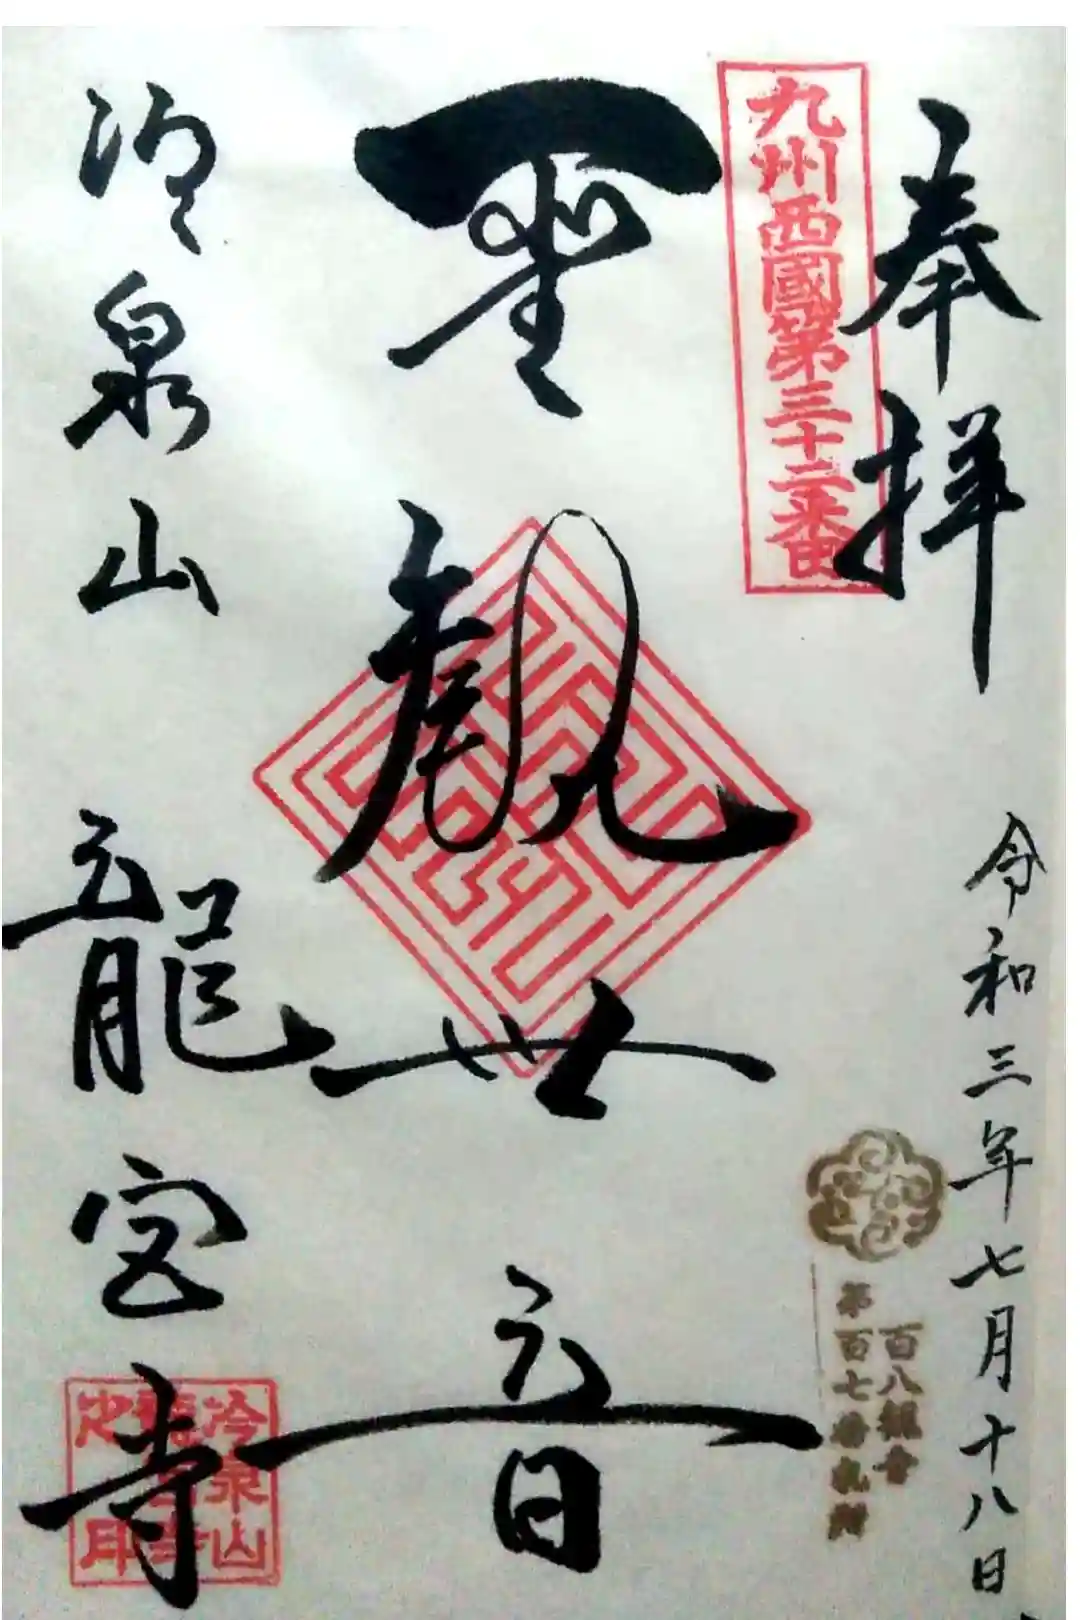 奉拝
令和三年七月十八日
九州西國第三十二番
百八観音
第百七番札所
聖観世音
冷泉山
龍宮寺